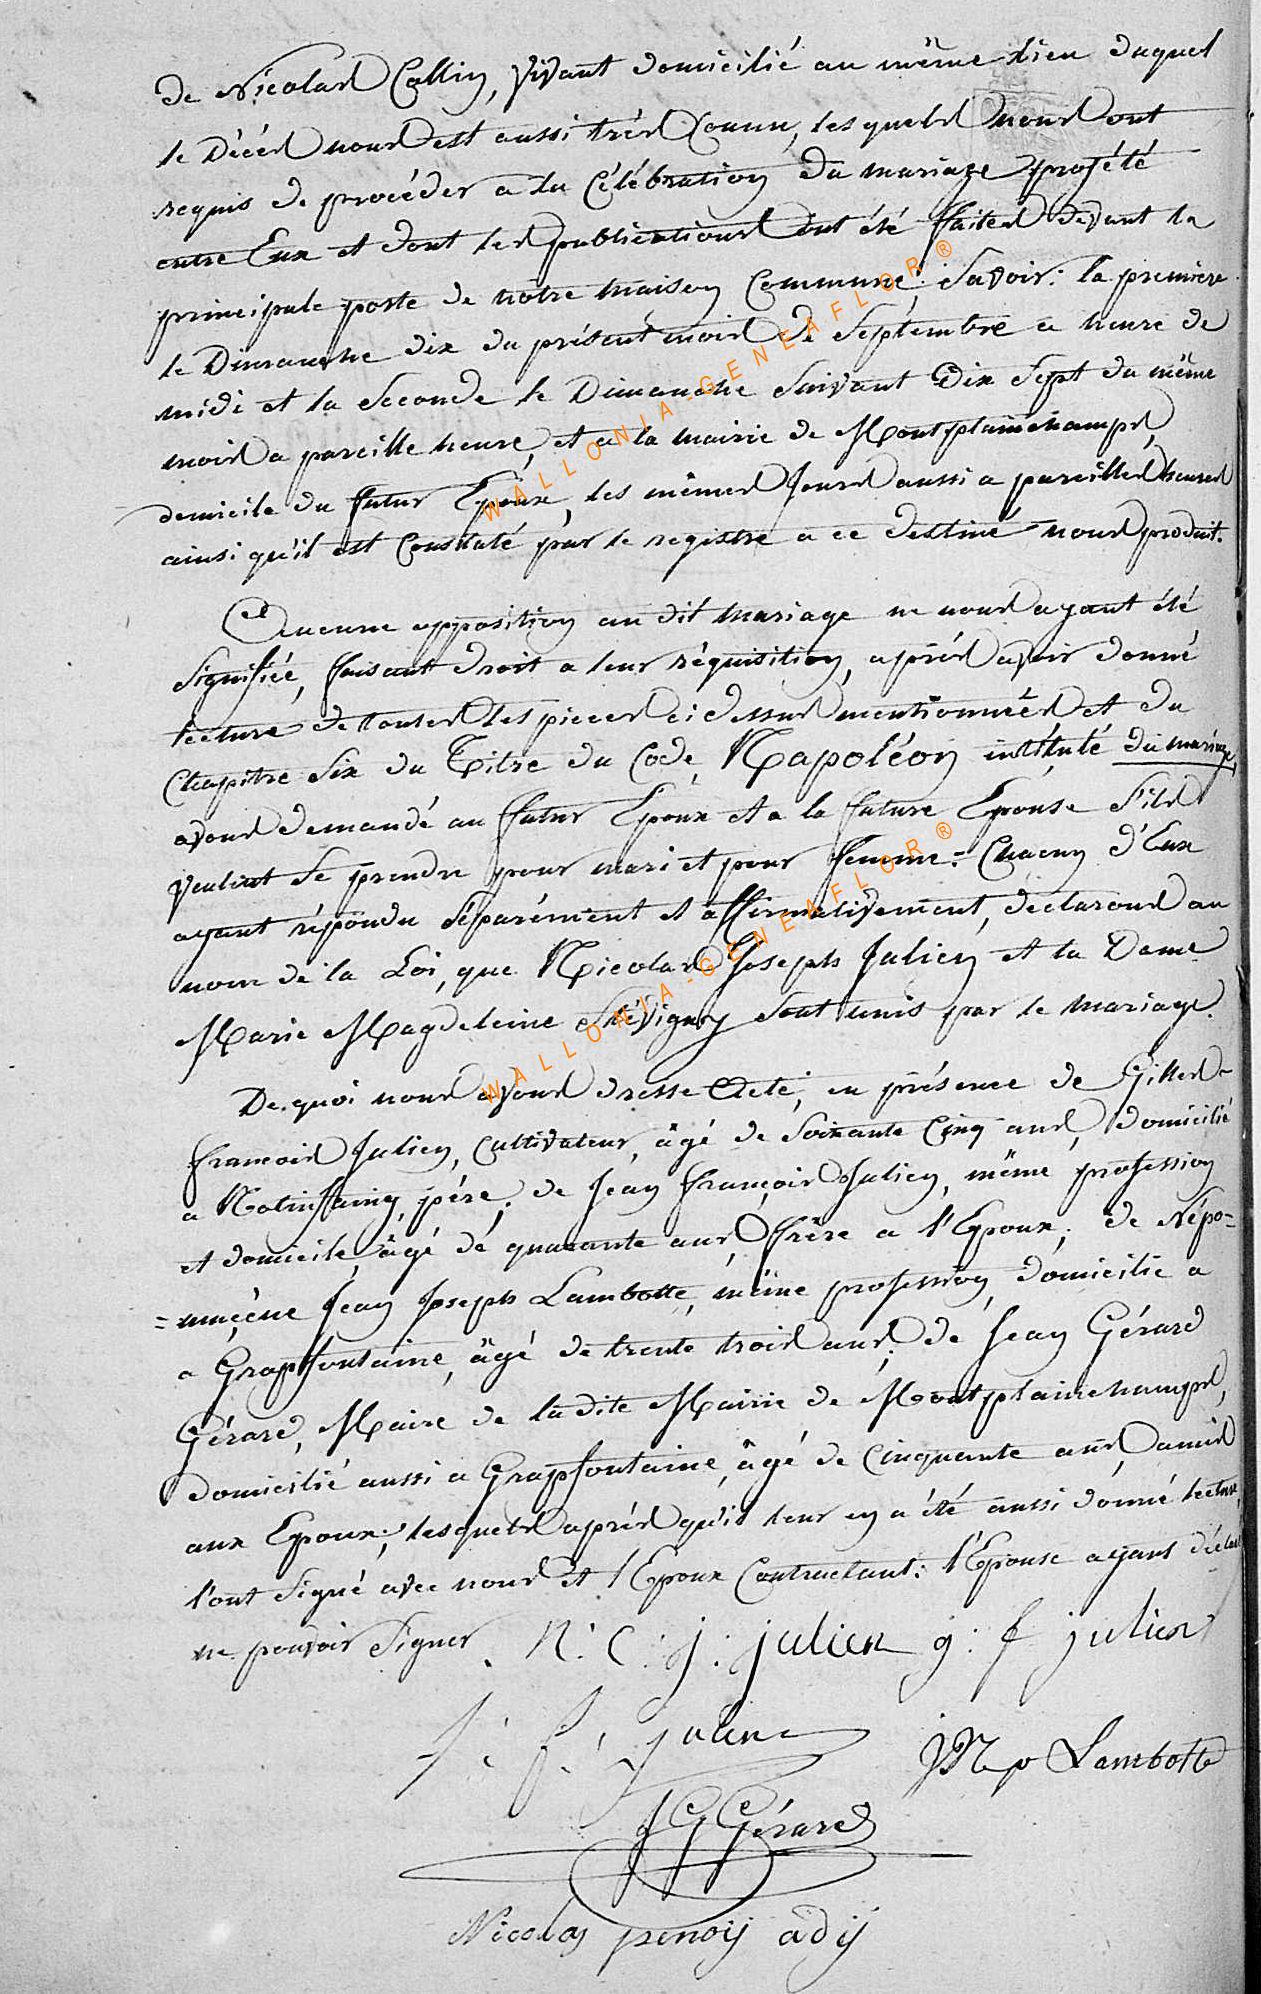 de Nicolas Collin, vivant domicilié au même lieu duquel
le Décés nous est aussi trés Connu, lesquels nous ont
requis de procéder a la Célébration du mariage projété
entre Eux et dont les publications ont été faites devant la
principale porte de notre maison Commune; Savoir: la premiere
le Dimanche dix du présent mois de Septembre a heure de
midi et la Seconde le Dimanche Suivant Dix Sept du même
mois a pareille heure, et a la mairie de Montplainchamps,
domicile du futur Epoux, les mêmes Jours aussi a pareilles heures
ainsi qu'il est Constaté par le registre a ce destiné nous produit.
Aucune opposition au dit mariage ne nous ayant été
Signifiée, faisant droit a leur réquisition, aprés avoir donné
lecture de toutes les pieces ci dessus mentionnées et du
Chapitre Six du Titre du Code Napoléon intitulé du mariage,
avons demandé au futur Epoux et a la future Epouse S'ils
veulent Se prendre pour mari et pour femme: Chacun d'Eux
ayant répondu Séparément et affirmativement, déclarons au
nom de la Loi, que Nicolas Joseph Julien et la Dame
Marie Magdeleine Sévigny Sont unis par le mariage.
De quoi nous avons dressé Acte, en présence de Gilles
françois Julien, Cultivateur, âgé de Soixante Cinq ans, domicilié
a Nolinfaing, pére; de Jean françois Julien, même profession
et domicile, âgé de quarante ans, frère a l'Epoux; de Népo=
=mucène Jean Joseph Lambotte, même profession, domicilié a
a Grapfontaine, âgé de trente trois ans; de Jean Gérard
Gérard, Maire de la dite Mairie de Montplainchamps,
domicilié aussi a Grapfontaine, âgé de Cinquante ans, amis
aux Epoux; lesquels aprés qu'il leur en a été aussi donné lecture,
l'ont Signé avec nous et l'Epoux Contractant: l'Epouse ayant déclaré
ne pouvoir Signer. N: C: j: julien g: f julien
J: f: Julien JNp Lambotte
JG Gérard
Nicolas penoij adij
WALLONIA-GENEAFLOR®
WALLONIA-GENEAFLOR®